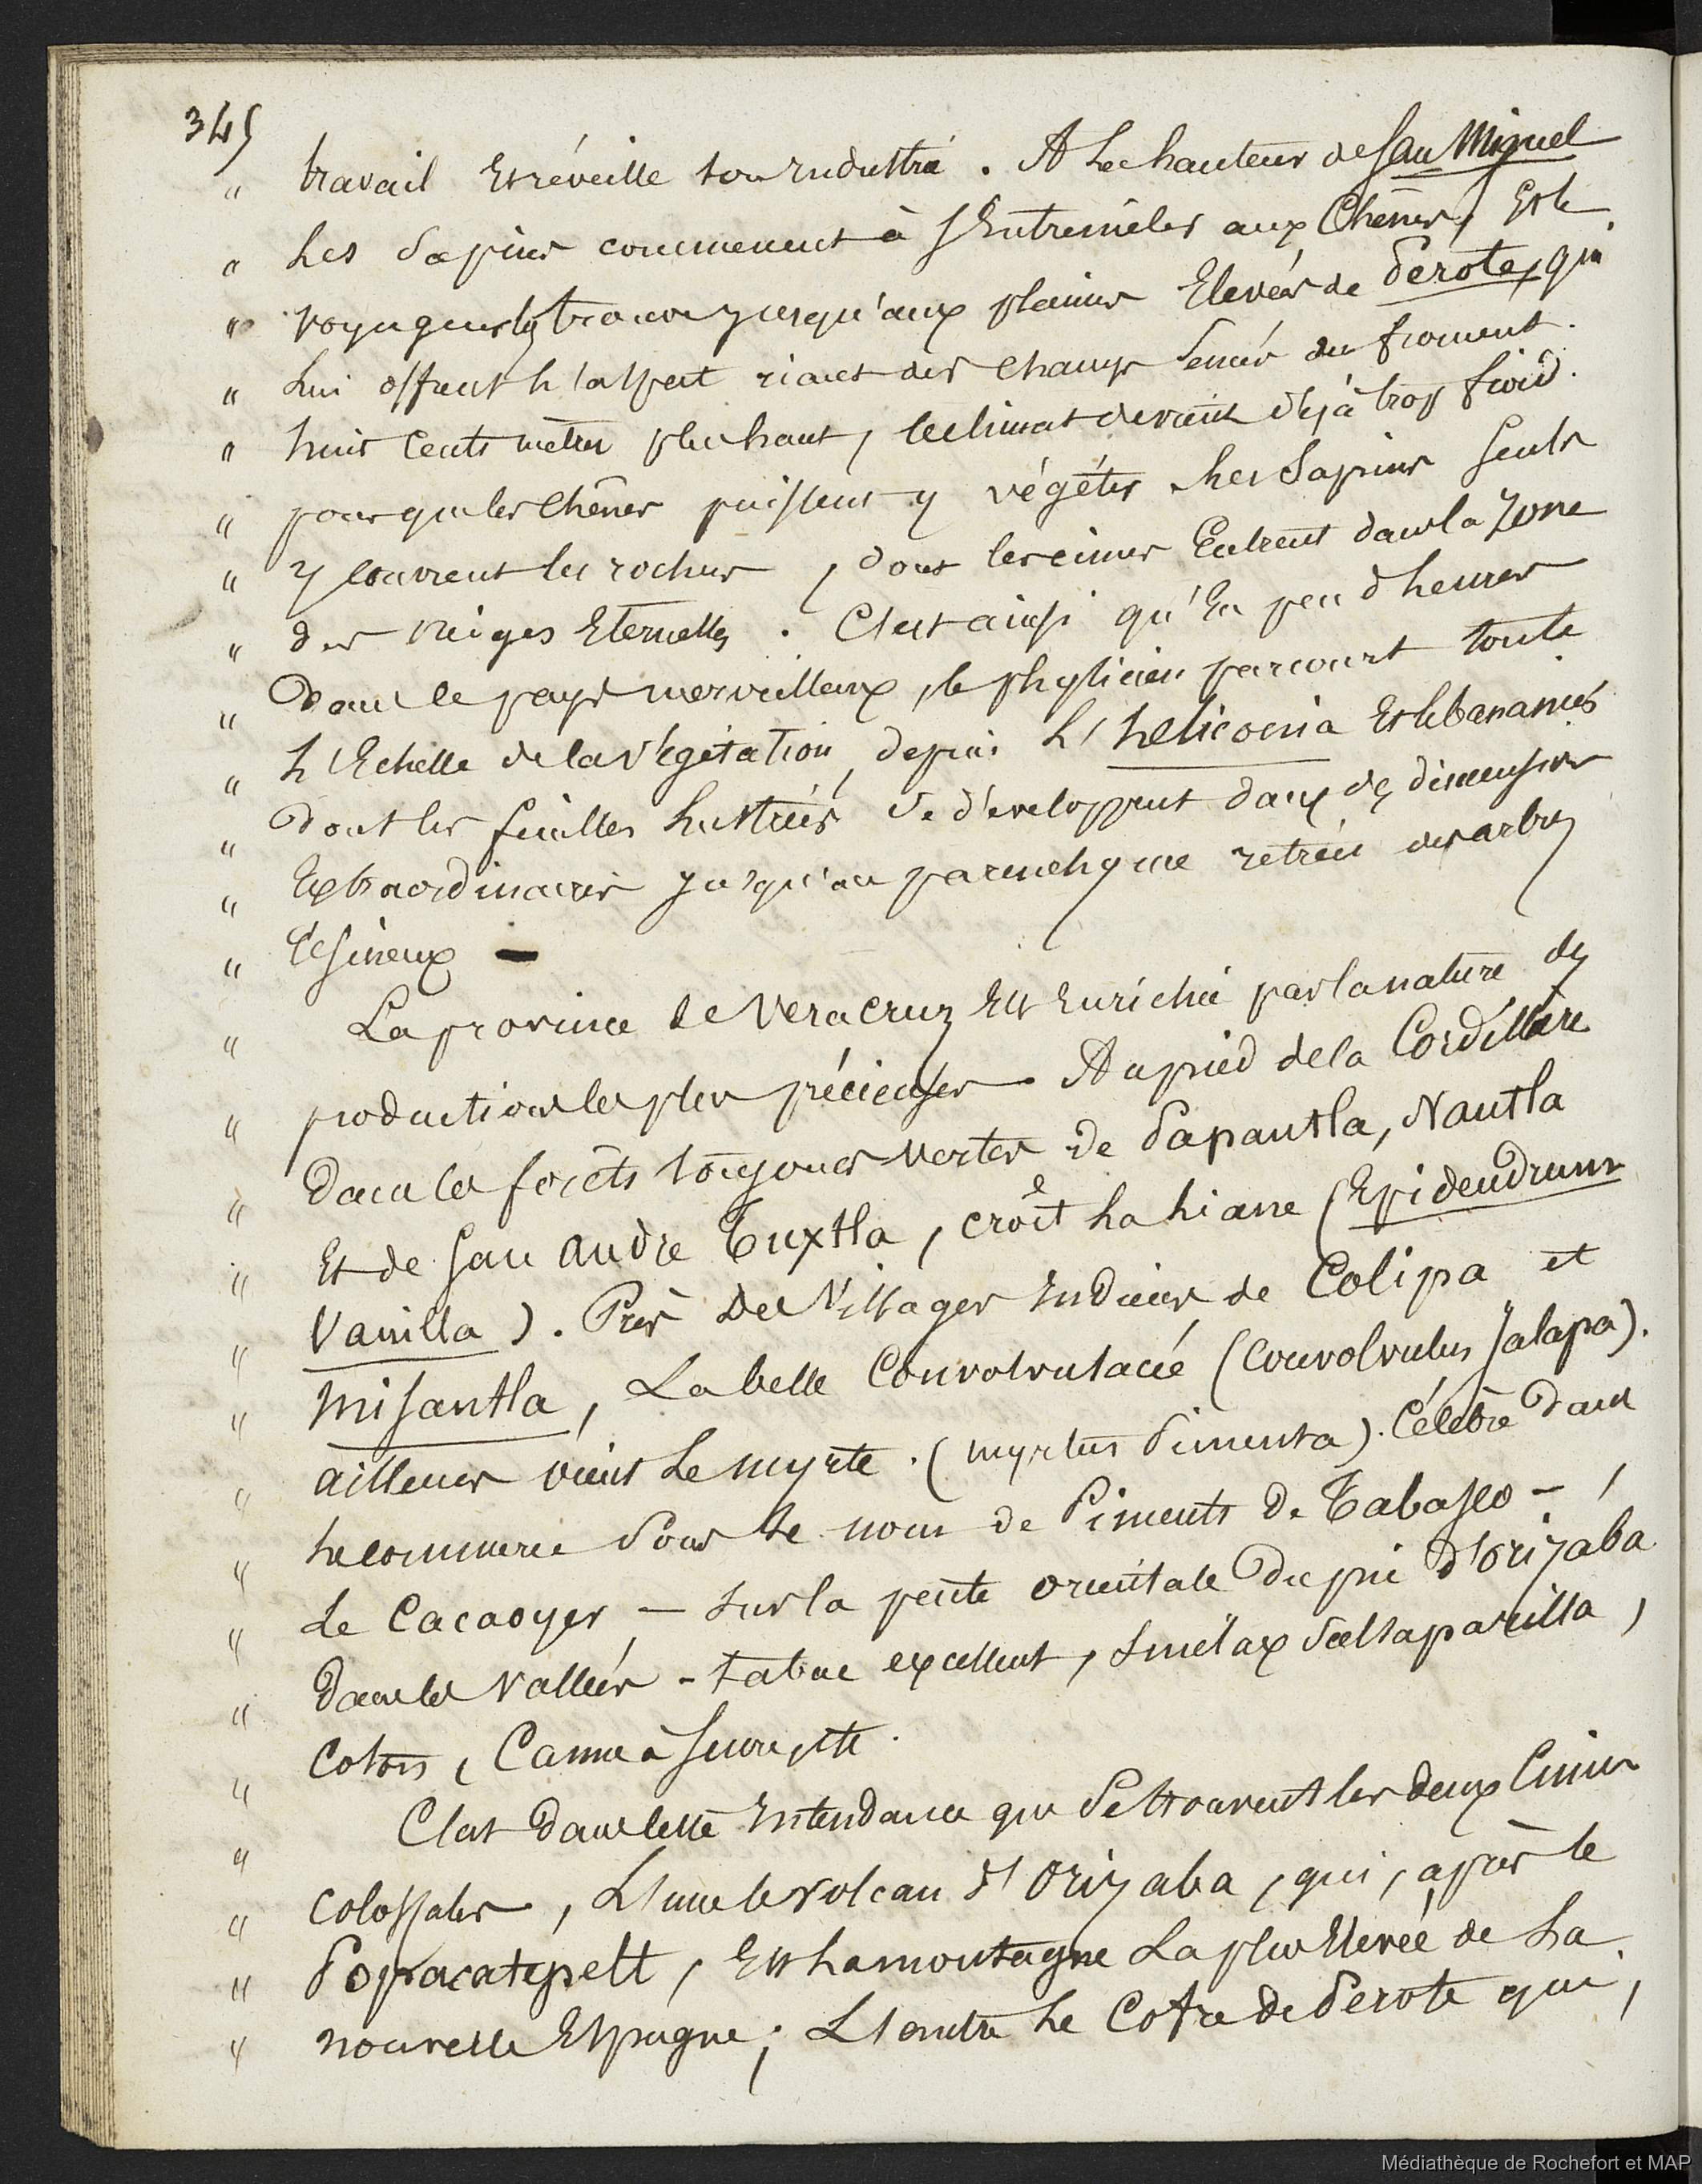 345
" travail Et réveille son Industrie . A La hauteur de San Miguel
" Les Sapins commencent à S'Entremêler aux Chênes, Et le
" voyageur les trouve jusqu'aux plaines Elevées de Perote, qui
" Lui offrent L'aspect riant des Champs Semés de froment.
" huit Cents mètres plus haut, le climat devient déjà trop froid.
" pour que les Chênes puissent y végéter. Les Sapins Seuls
" y couvrent les rochers, dont les cimes Entrent dans la Zone
" des neiges Eternelles . C'est ainsi qu'En peu d'heures
" Dans ce pays merveilleux, le physicien parcourt toute
" L'Echelle de la Végétation, depuis L'heliconia Et le bananier
" Dont les feuilles Lustrées Se développent dans des dimensions
" Extraordinaires jusqu'au parenchyme rétréci des arbres
" résineux —
" La province de Veracruz Est Enrichie par la nature des
" productions les plus précieuses. Au pied de la Cordillère
" Dans les forêts toujours vertes de Papantla, Nautla
" Et de San André Tuxtla, croît La Liane (Epidendrum
" Vanilla ). Près Des Villages Indiens de Colipa et
" Misantla, La belle Convolvulacée (Convolvulus Jalapa).
" ailleurs vient Le myrte . (myrtus Pimenta). Célèbre dans
" Le commerce Sous Le nom de Piments De Tabasco - ,
" Le Cacaoyer — Sur la pente orientale Du pic D'Orizaba
" Dans les Vallées - tabac excellent, Smilax Salsaparilla,
" Coton, Canne à Sucre, etc.
" C'est Dans cette Intendance que Se trouvent les deux Cimes
" Colossales, L'une le volcan d'Orizaba, qui, après le
" Popocatepelt, Est La montagne La plus Elevée de La
" nouvelle Espagne; L'autre Le Cofre de Perote qui,
Médiathèque de Rochefort et MAP